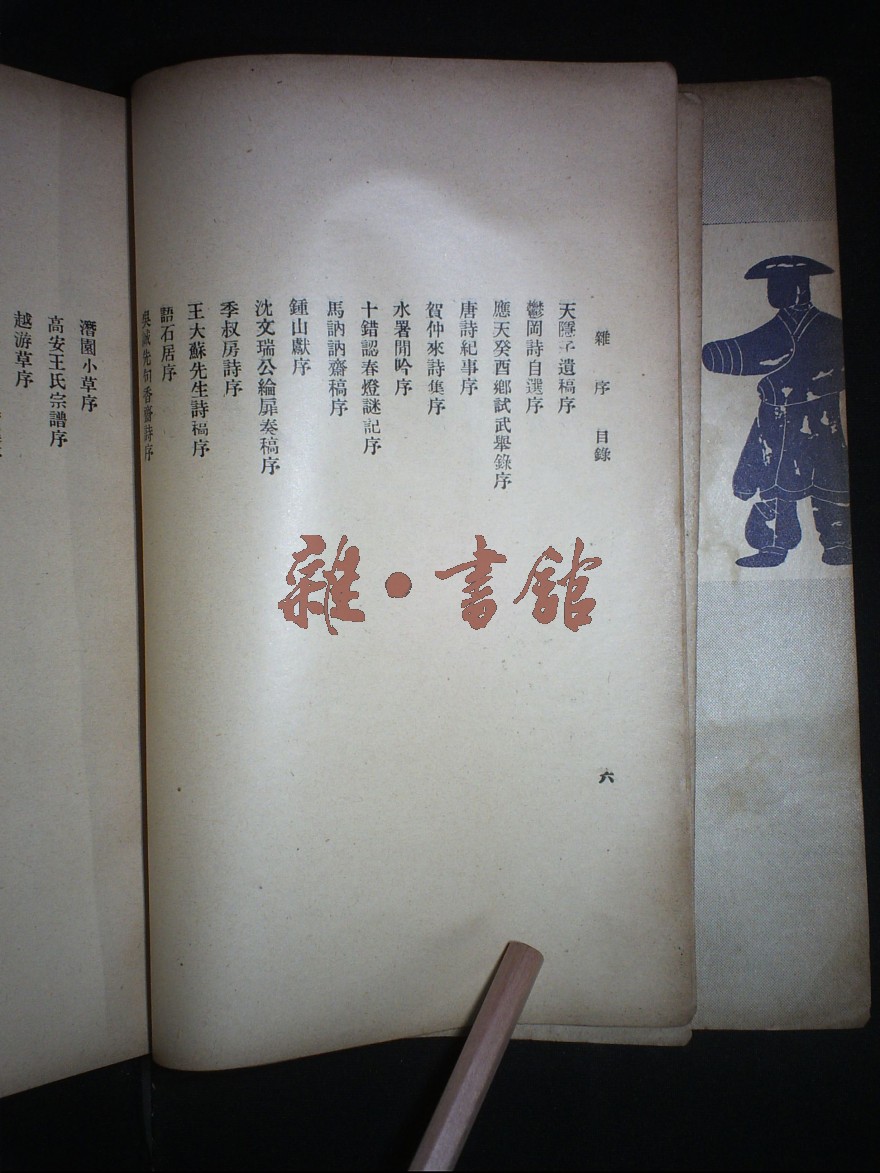 雜序目錄
天隱子遺稿序
鬱岡詩自選序
應天癸酉鄉試武舉錄序
唐詩紀事序
賀仲來詩集序
水署閒吟序
十錯認春燈謎記序
馬訥訥齋稿序
鍾山獻序
沈文瑞公綸扉奏稿序
季叔房詩序
王大蘇先生詩稿序
語石居序
香齋詩序
六
潛園小草序
高安王氏宗譜序
越游草序
雜·書館